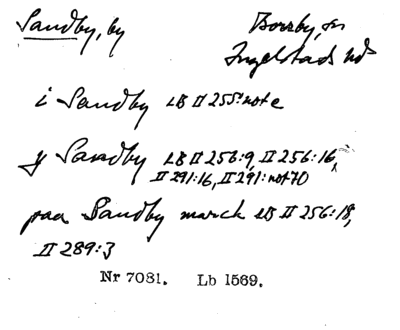 Sandby, by
Borrby, sn
Ingelstads hd
i Sandby LB II 255:note
y Sandby LB II 256:9, II 256:16,
II 291:16, II 291:not 70
paa Sandby march LB II 256:18,
II 289:3
Nr 7081. Lb 1569.